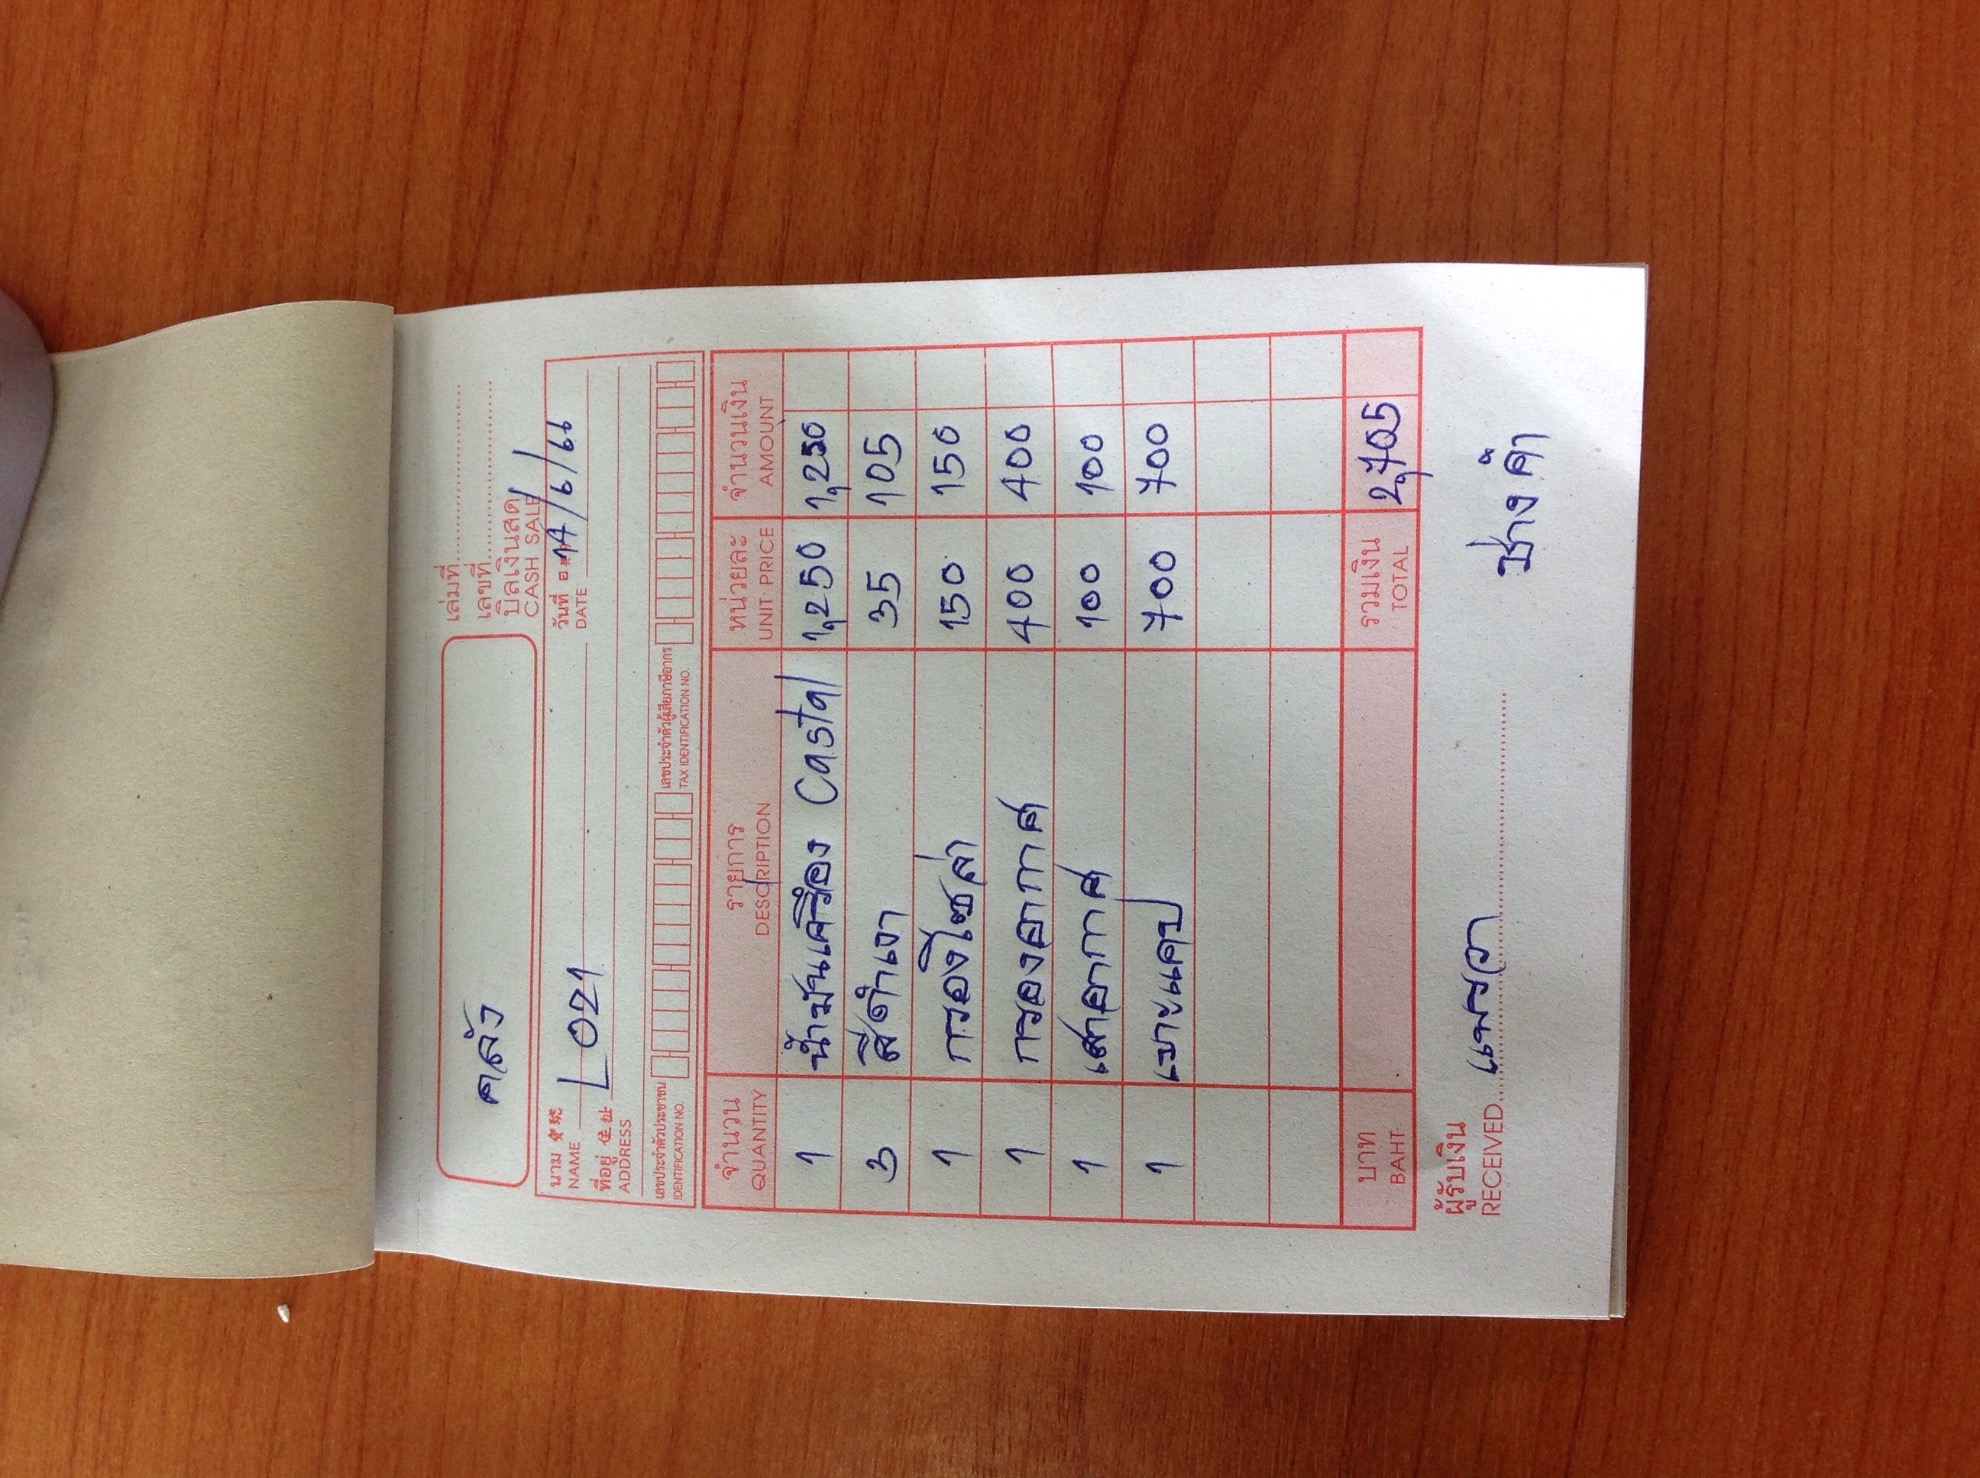 คลัง
เล่มที่
เลขที่
บิลเงินสด
CASH SALE
นาม L 021 วันที่ 14/6/66
NAME DATE
ที่อยู่ 住址
ADDRESS
เลขประจำตัวประชาชน เลขประจำตัวผู้เสียภาษีอากร
IDENTIFICATION NO. TAX IDENTIFICATION NO.
จำนวน รายการ หน่วยละ จำนวนเงิน
QUANTITY DESCRIPTION UNIT PRICE AMOUNT
1 น้ำมันเครื่อง Castal 1,250 1,250
3 สีดำเงา 35 105
1 กรองโซล่า 150 150
1 กรองอากาศ 400 400
1 เสาอากาศ 100 100
1 เบาะแคป 700 700
บาท รวมเงิน 2,705
BAHT TOTAL
ผู้รับเงิน
RECEIVED แพรวา
ช่างคำ